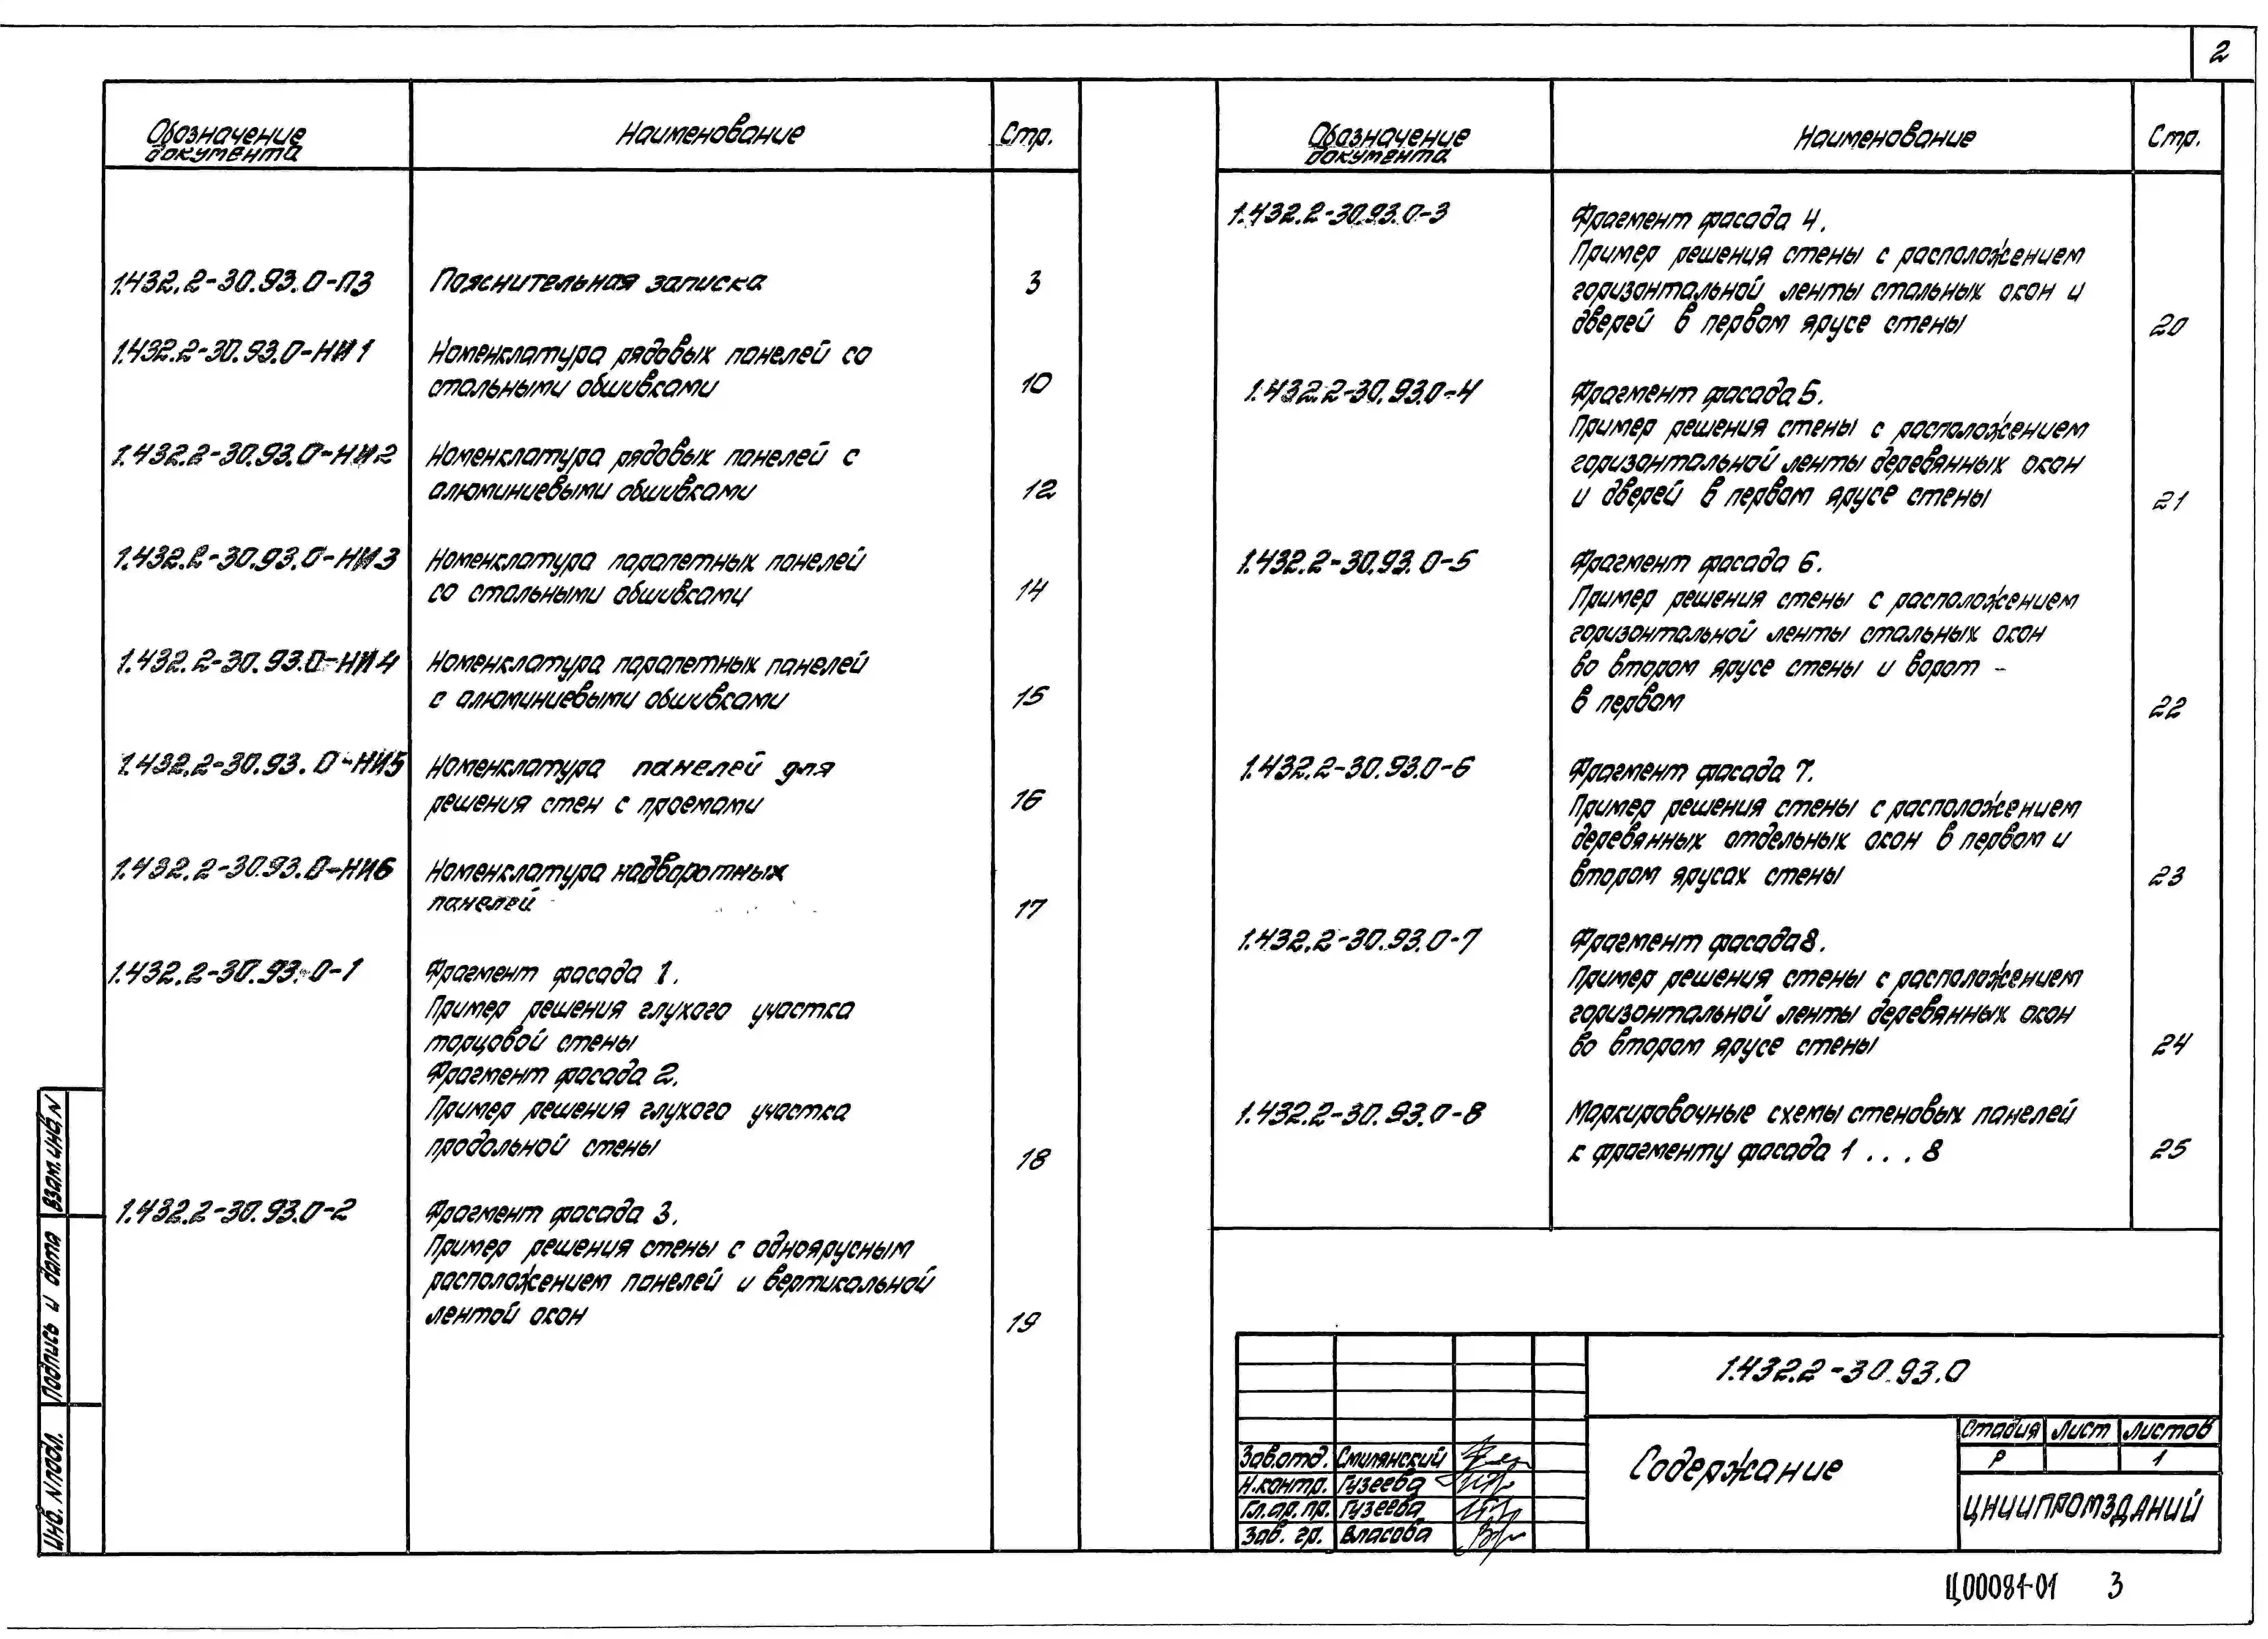 2
Обозначение документа Наименование Стр.
1.432.2-30.93.0-ПЗ Пояснительная записка 3
1.432.2-30.93.0-НИ1 Номенклатура рядовых панелей со
стальными обшивками 10
1.432.2-30.93.0-НИ2 Номенклатура рядовых панелей с
алюминиевыми обшивками 12
1.432.2-30.93.0-НИ3 Номенклатура парапетных панелей
со стальными обшивками 14
1.432.2-30.93.0-НИ4 Номенклатура парапетных панелей
с алюминиевыми обшивками 15
1.432.2-30.93.0-НИ5 Номенклатура панелей для
решения стен с проемами 16
1.432.2-30.93.0-НИ6 Номенклатура надворотных
панелей 17
1.432.2-30.93.0-1 Фрагмент фасада 1.
Пример решения глухого участка
торцовой стены
Фрагмент фасада 2.
Пример решения глухого участка
продольной стены 18
1.432.2-30.93.0-2 Фрагмент фасада 3.
Пример решения стены с одноярусным
расположением панелей и вертикальной
лентой окон 19
Обозначение документа Наименование Стр.
1.432.2-30.93.0-3 Фрагмент фасада 4.
Пример решения стены с расположением
горизонтальной ленты стальных окон и
дверей в первом ярусе стены 20
1.432.2-30.93.0-4 Фрагмент фасада 5.
Пример решения стены с расположением
горизонтальной ленты деревянных окон
и дверей в первом ярусе стены 21
1.432.2-30.93.0-5 Фрагмент фасада 6.
Пример решения стены с расположением
горизонтальной ленты стальных окон
во втором ярусе стены и ворот -
в первом 22
1.432.2-30.93.0-6 Фрагмент фасада 7.
Пример решения стены с расположением
деревянных отдельных окон в первом и
втором ярусах стены 23
1.432.2-30.93.0-7 Фрагмент фасада 8.
Пример решения стены с расположением
горизонтальной ленты деревянных окон
во втором ярусе стены 24
1.432.2-30.93.0-8 Маркировочные схемы стеновых панелей
к фрагменту фасада 1 ... 8 25
1.432.2-30.93.0
Содержание
Стадия Лист Листов
Р 1
ЦНИИПРОМЗДАНИЙ
Зав.отд. Смилянский
Н.контр. Гузеева
Гл.ар.пр. Гузеева
Зав. гр. Власова
Взам.инв.N
Подпись и дата
Инв. N подл.
Ц00081-01 3